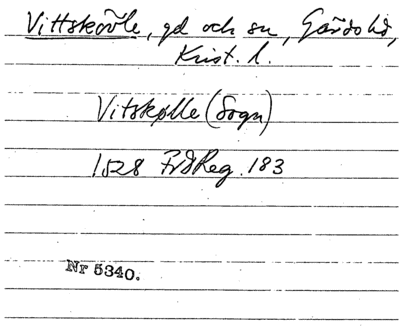 Vittskövle, gd och sn, Gärds hd,
Krist. l.
Vitskølle (Sogn)
1528 FrdReg. 183
Nr 5340.